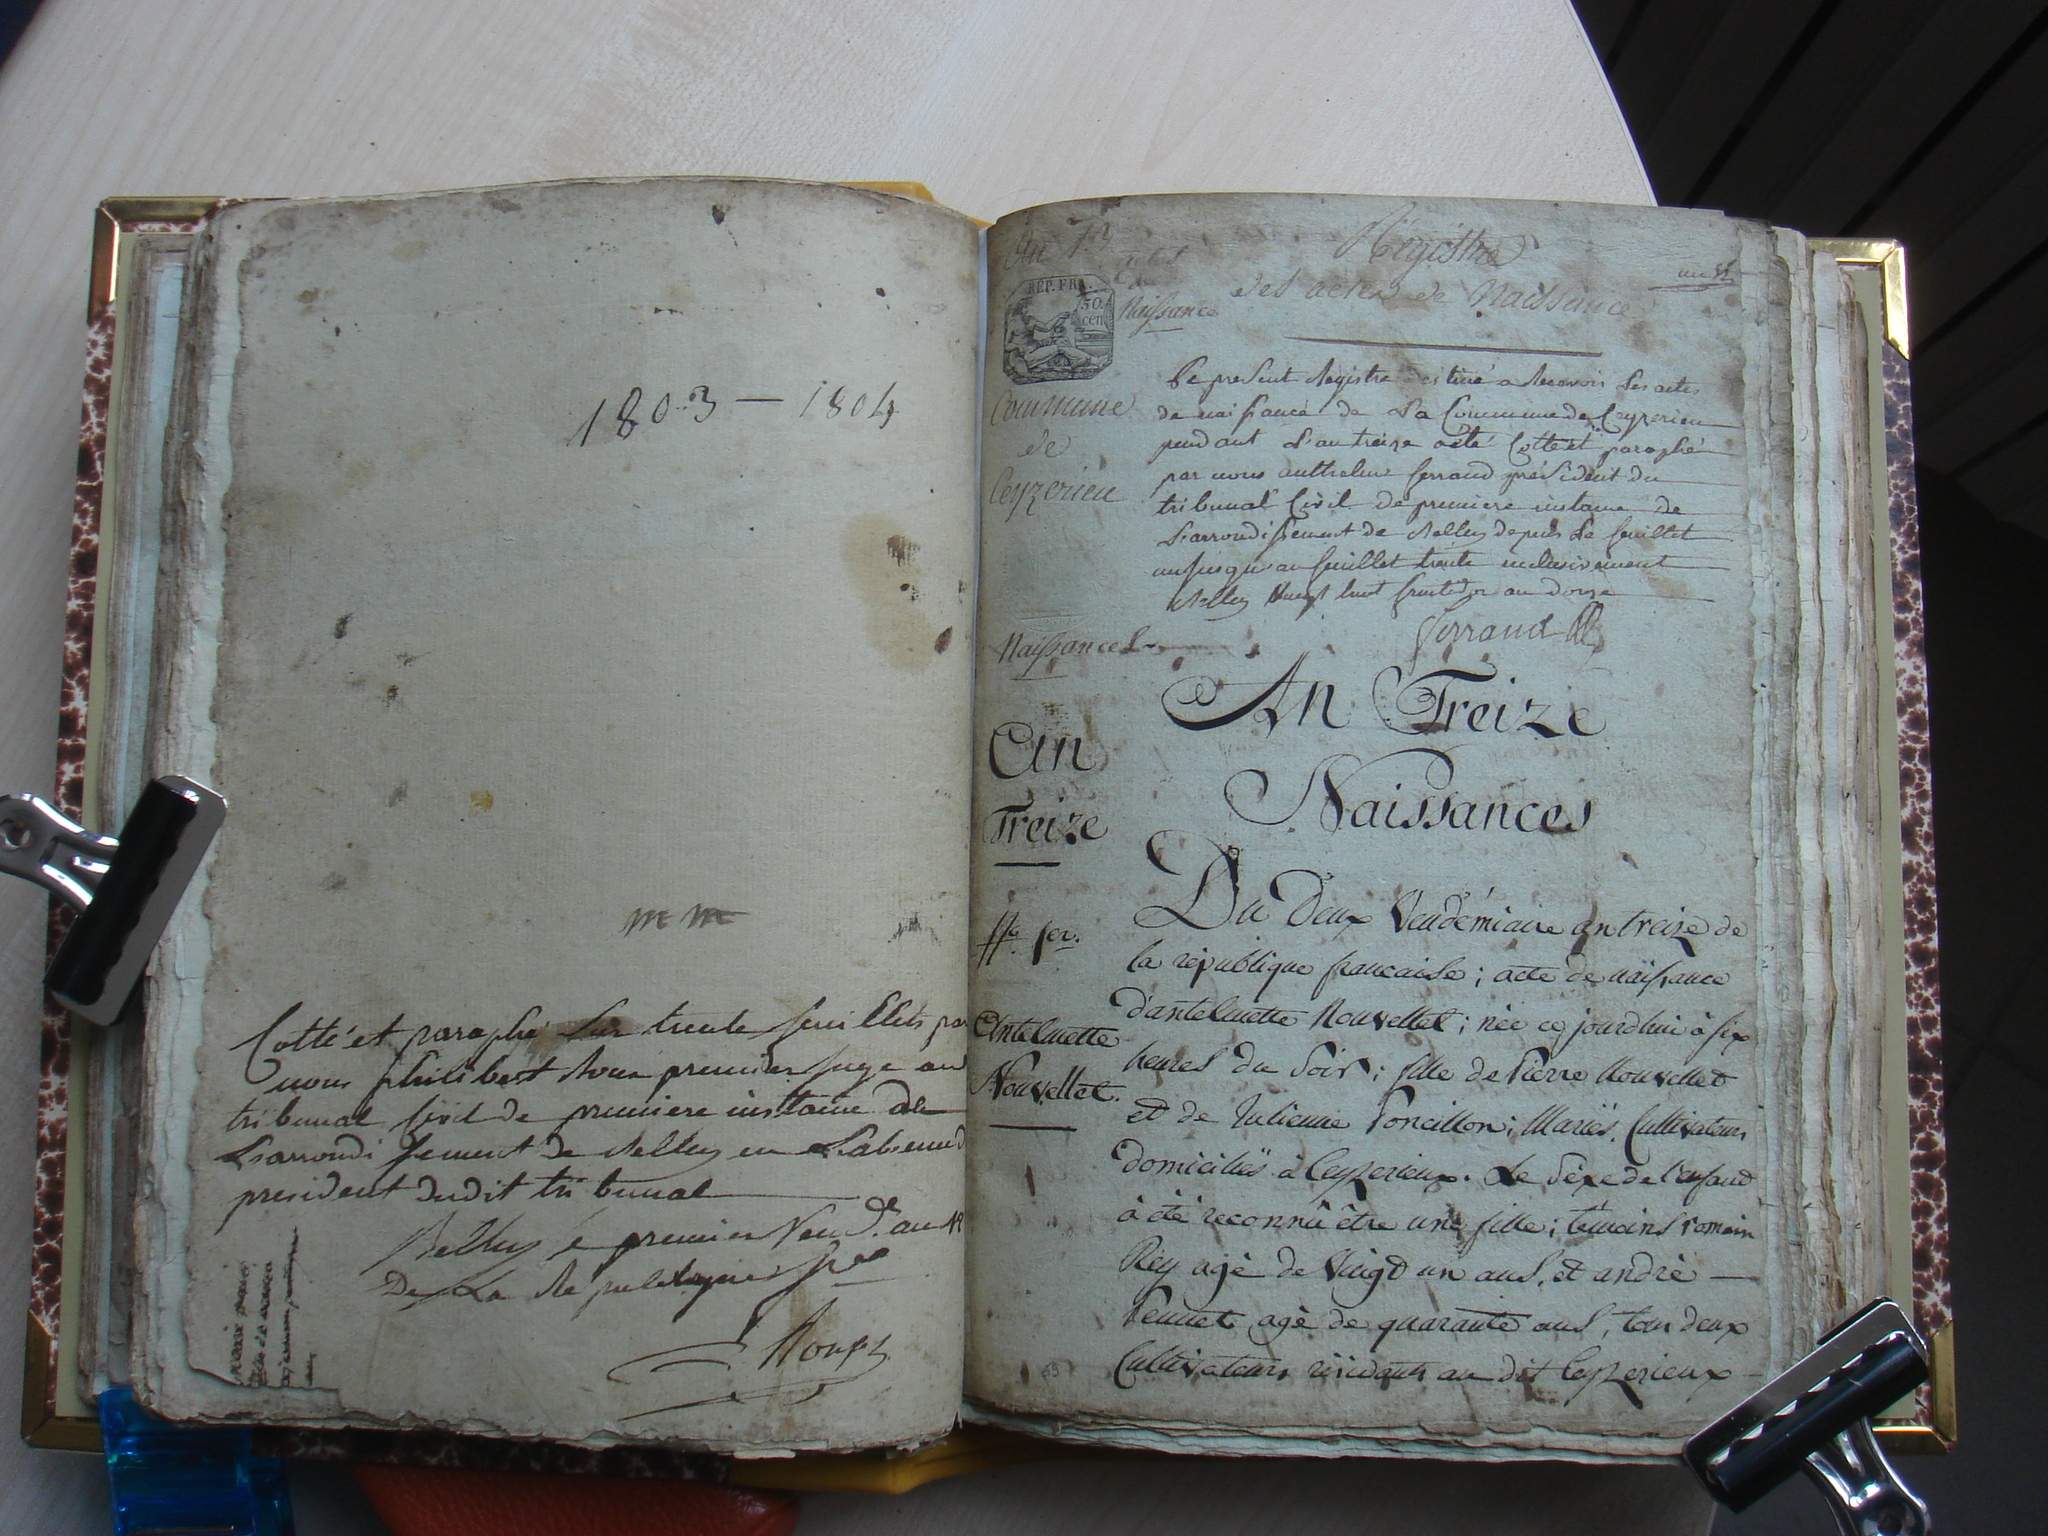 1803 — 1804
Cotté et paraphé sur trente feuillets par
nous philibert Roux premier juge au
tribunal Civil de premiere instance de
L'arrondissement de Belley en L'absence d
president dudit tribunal
Belley le premier Vend.re an 12
De La Republique
Roux
An 13
Registre
des actes de Naissance
REP. FRA.
50
cen
Naissance
Commune
de
Ceyzerieu
Le present Registre destiné a Recevoir Les actes
de naissance de La Commune de Ceyzerieu
pendant L'an treize a été Cotté et paraphé
par nous anthelme ferrand président du
tribunal Civil de premiere instance de
L'arrondissement de Belley depuis Le feuillet
un jusqu'au feuillet trente inclusivement
Belley vingt huit fructidor an douze
ferrand
Naissances
An Treize
Naissances
An
Treize
No. 1er.
Antelmette
Nouvellet.
Du Deux Vendémiaire an treize de
la république francaise; acte de naissance
d'antelmette Nouvellet; née cejourdhui à six
heures du Soir; fille de Pierre Nouvellet
et de Julienne Poncillon; Mariés, Cultivateurs
domiciliés à Ceyzerieux. Le Séxe de l'enfant
à été reconnû être une fille; témoins romain
Rey agé de vingt un ans, et andré
Pennet agé de quarante ans, tou deux
Cultivateurs résidants au dit Ceyzerieux